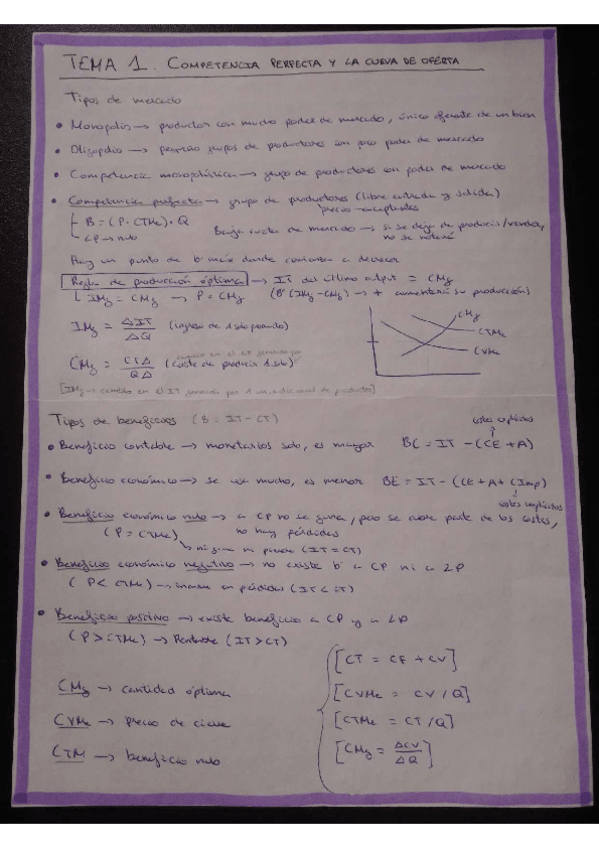 TEMA 1. COMPETENCIA PERFECTA Y LA CURVA DE OFERTA
Tipos de mercado
• Monopolio → productor con mucho poder de mercado, único oferente de un bien
• Oligopolio → pequeño grupos de productores con poco poder de mercado
• Competencia monopolística → grupo de productores con poder de mercado
• Competencia perfecta → grupo de productores (libre entrada y salida)
precio-aceptantes
B = (P - CTMe) · Q
Baja cuota de mercado → si se deja de producir/vender,
CP → nulo
no se notará
Hay un punto de bº máx donde comienza a decrecer
Regla de producción óptima → IT del último output = CMg
IMg = CMg → P = CMg (Bº (IMg - CMg) → + aumentará su producción)
IMg = ΔIT / ΔQ (ingreso de 1 solo)
CMg = CTΔ / QΔ (coste de producir 1 solo)
CMg
CTMe
CVMe
[IMg → cambio en el IT generado por 1 ud. adicional de producto]
Tipos de beneficios (B = IT - CT)
costes explícitos
• Beneficio contable → monetarios solo, es mayor BC = IT - (CE + A)
• Beneficio económico → se usa mucho, es menor BE = IT - (CE + A + CImp)
costes implícitos
• Beneficio económico nulo → a CP no se gana, pero se cubre parte de los costes,
(P = CTMe) no hay pérdidas
ni gana ni pierde (IT = CT)
• Beneficio económico negativo → no existe bº a CP ni a LP
(P < CTMe) → incurre en pérdidas (IT < CT)
• Beneficio positivo → existe beneficio a CP y a LP
(P > CTMe) → Rentable (IT > CT)
[CT = CF + CV]
CMg → cantidad óptima
[CVMe = CV / Q]
CVMe → precio de cierre
[CTMe = CT / Q]
CTM → beneficio nulo
[CMg = ΔCV / ΔQ]